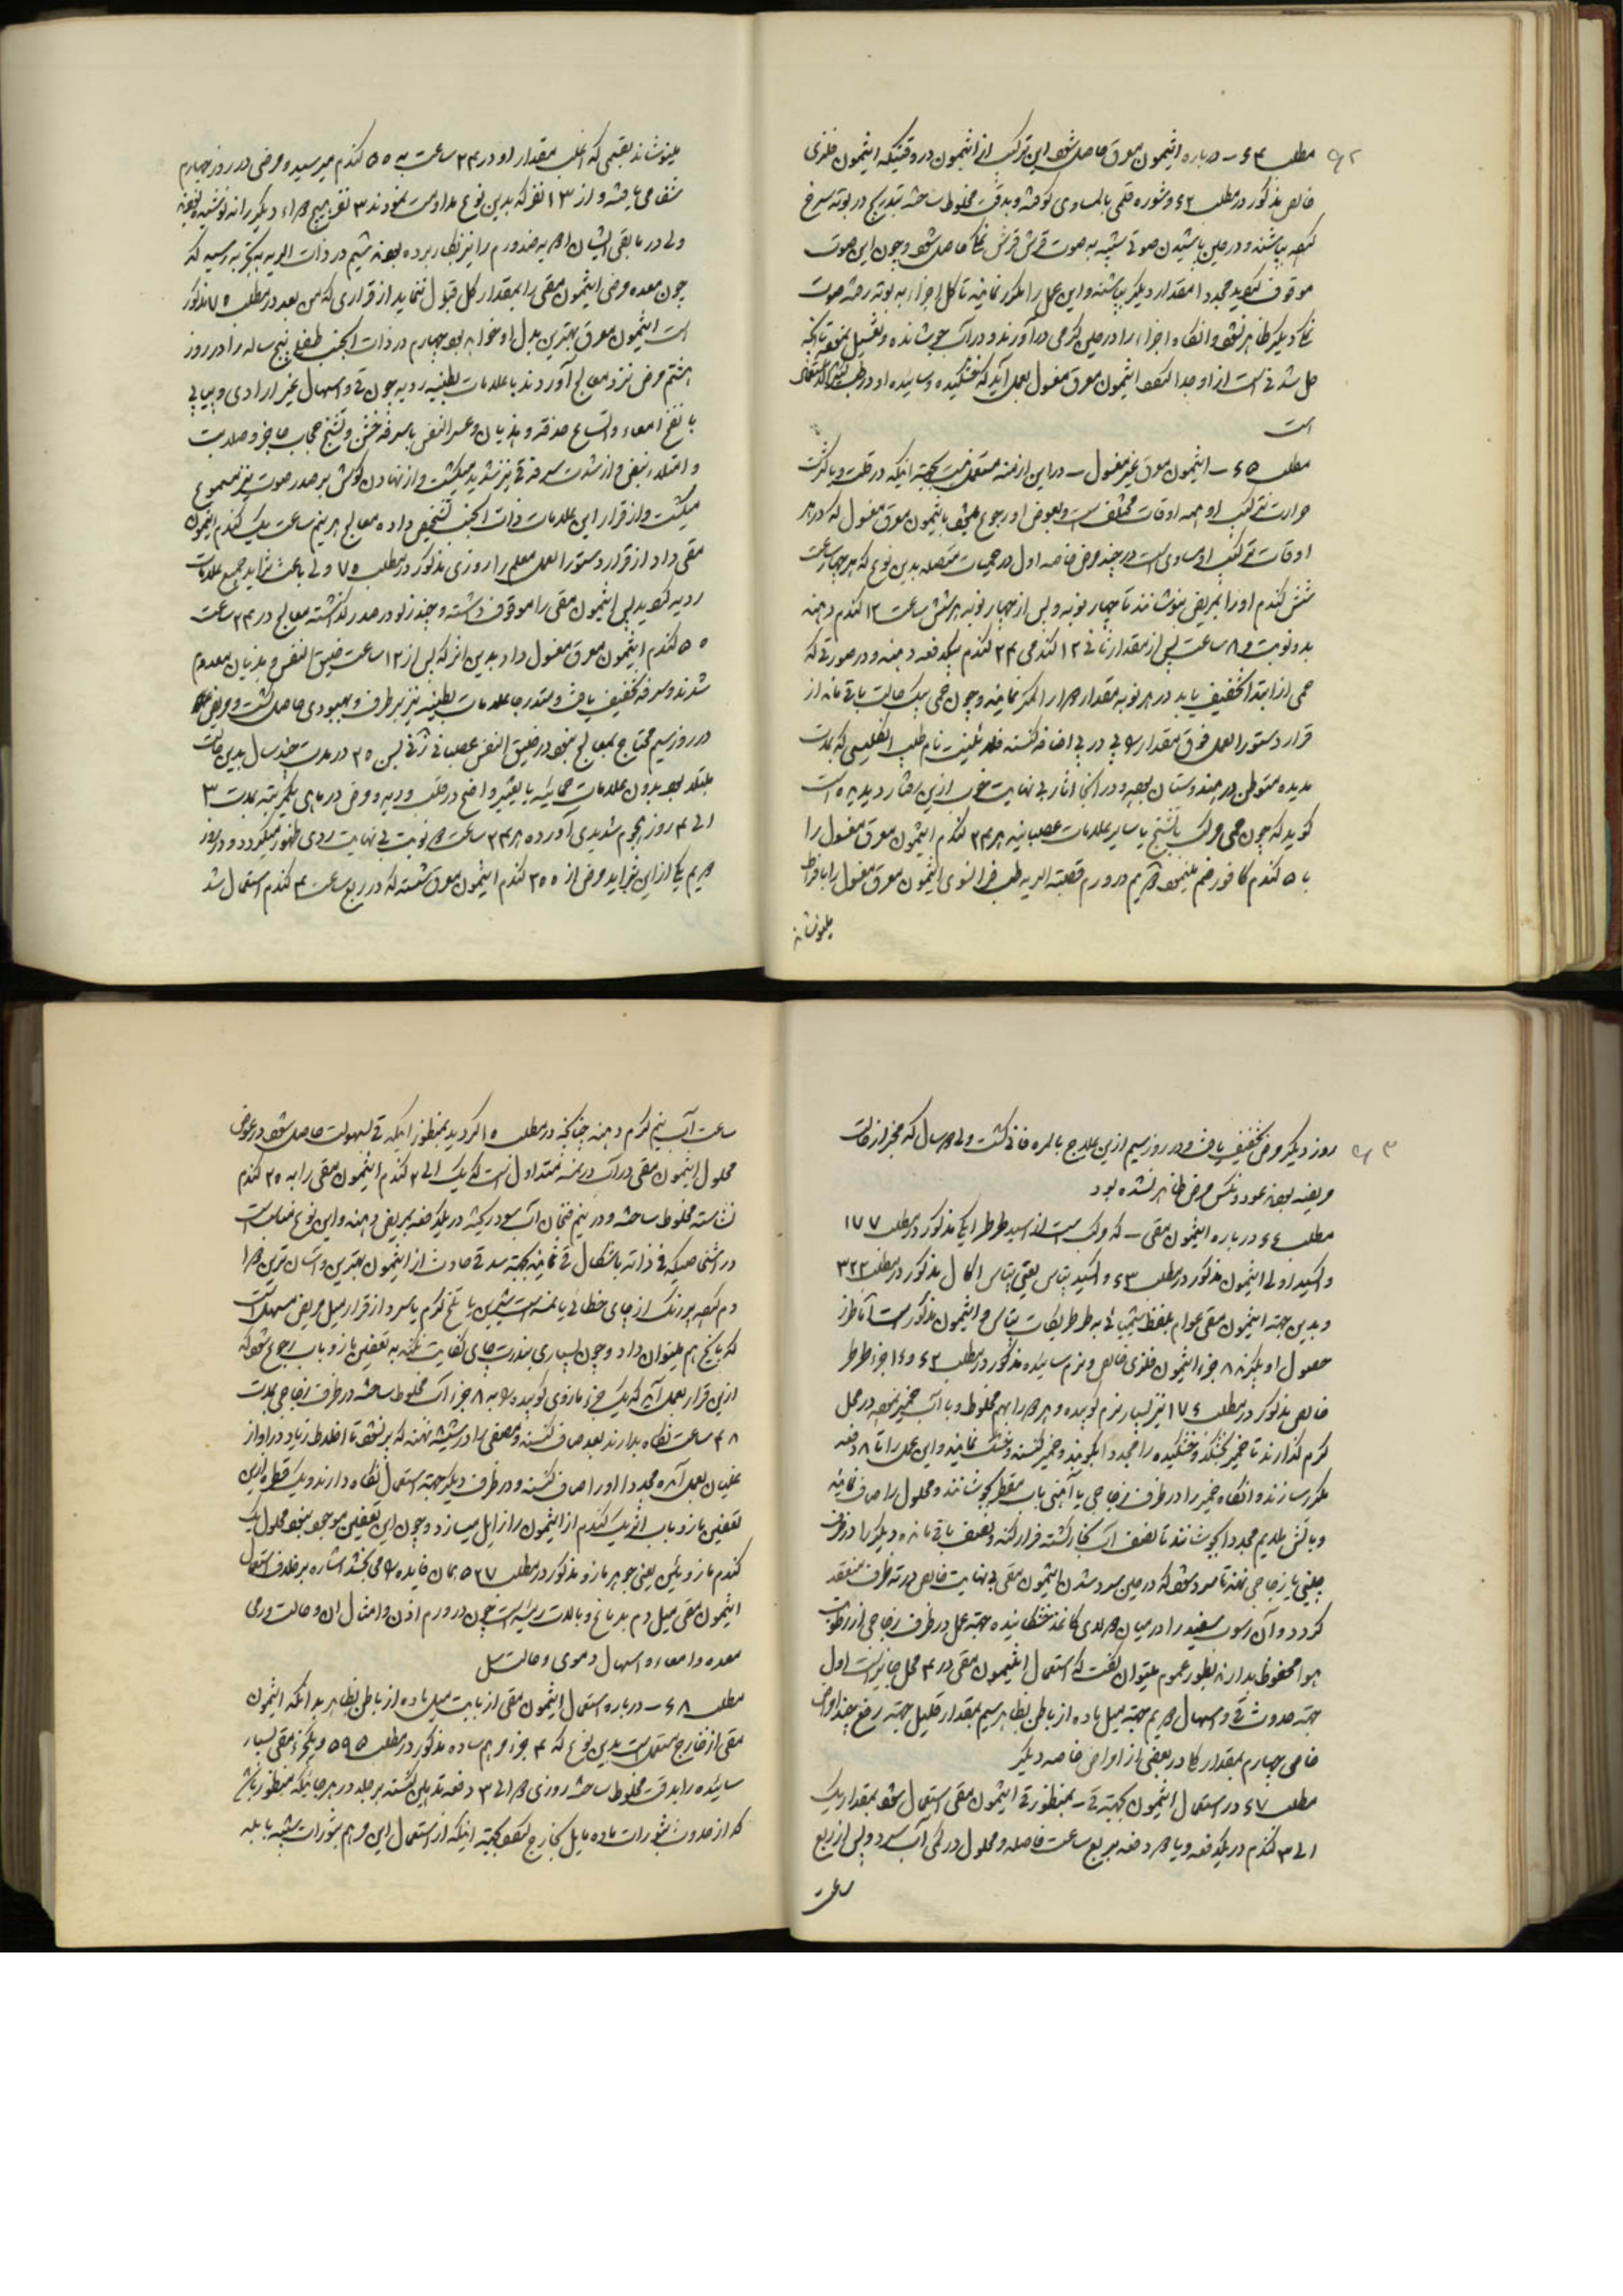 مطلب ۶۴ – درباره انتیمون معرق حاصل شود این ترکیب از انتیمون در وقتیکه انتیمون فلزی
خالص مذکور در مطلب ۶۲ و شوره قلمی بالمساوی کوفته و بدقت مخلوط ساخته بتدریج در بوته سرخ
کرده بپاشند و در حین پاشیدن صوتی شبیه به صوت قرش قرش نمک حاصل شود و چون این صوت
موقوف گردید مجددا مقدار دیگر بپاشند و این عمل را مکرر نمایند تا کل اجزاء به بوته رخته صوت
نمک دیگر ظاهر نشود و آنگاه اجزاء را در حین گرمی درآورند و در آب جوشانده و تغسیل نموده تا آنچه
حل شدنی است از او جدا گردد انتیمون معرق مغسول بعمل آید که خشکیده و سائیده او در طب
است
مطلب ۶۵ – انتیمون معرق غیر مغسول – در این ازمنه مستعمل نیست بجهة اینکه در قلت و یا کثرت
حرارت ترکیب او همه اوقات مختلف است و بعوض او رجوع میشود بانتیمون معرق مغسول که در هر
اوقات ترکیب او مساوی است در چند مرض خاصه اول در حمیات متصله بدین نوع که هر چهار ساعت
شش گندم او را بمریض بنوشانند تا چهار نوبه و پس از چهار نوبه هر شش ساعت ۱۲ گندم دهند
بدو نوبت و ۸ ساعت پس از مقدار ثانی ۱۲ گندمی ۲۴ گندم بیکدفعه دهند و در صورتی که
حمی از ابتدا تخفیف یابد در هر نوبه مقدار دوا را کمتر نمایند و چون حمی بیک حالت باقی ماند از
قرار دستورالعمل فوق مقدار دوا پی در پی اضافه کنند نام طبیب انگلیسی که بمدت
مدیده متوطن در هندوستان بوده و در آنجا آثار بی نهایت خوب ازین رفتار دیده است
گوید که چون حمی مرکب با تشنج یا سایر علامات عصبانیه هر ۲۴ گندم انتیمون معرق مغسول را
با ۵ گندم کافور ضم مینمود دویم در ورم قصبة الریه طبیب فرانسوی انتیمون معرق مغسول را بافراط
مینوشاند
مینوشاند بقسمی که اغلب مقدار او در ۲۴ ساعت به ۵۵ گندم میرسید و مرضی در روز چهارم
شفا می یافتند و از ۱۳ نفر که بدین نوع مداومت نمودند ۳ نفر هیچ دواء دیگر را ننوشیده بودند
ولی در مابقی ایشان ادویه ضد ورم را نیز بکار برده بودند سیم در ذات الریه بتجربه رسیده که
چون معده مرضی انتیمون مقی را بمقدار کل قبول ننماید از قراری که من بعد در مطلب ۷۵ مذکور
است انتیمون معرق بهترین بدل او خواهد بود چهارم در ذات الجنب طفل پنج ساله را در روز
هشتم مرض نزد معالج آوردند با علامات بطنیه ردیه چون قی و اسهال غیر ارادی و پیاپی
با نفخ امعاء و اتساع حدقه و هذیان و عسر النفس با سرفه خشن و تشنج حجاب حاجز و صلابت
و امتلاء نبض و از شدت سرفه قی نیز شدید میگشت و از نهادن گوش بر صدر صوت نیز مسموع
میگشت و از قرار این علامات ذات الجنب تشخیص داده معالج هر نیم ساعت یک گندم انتیمون
مقی داد از قرار دستورالعمل معلم رازوری مذکور در مطلب ۷۵ ولی باعث تزاید جمیع علامات
ردیه گردید پس انتیمون مقی را موقوف داشته و چند زلو در صدر گذاشته معالج در ۲۴ ساعت
۵۵ گندم انتیمون معرق مغسول داد و بدین اثر که پس از ۱۲ ساعت ضیق النفس و هذیان معدوم
شدند و سرفه تخفیف یافت و متدرجا علامات بطنیه نیز برطرف و بهبودی حاصل گشت و مریض
در روز سیم محتاج بمعالج نبود در ضیق النفس عصبانی زنی بسن ۳۵ در مدت چند سال بدین حالت
مبتلا بود بدون علامات حمائیه یا تغییر واضح در قلب و ریه و مرض در ماهی یکمرتبه بمدت ۳
الی ۴ روز هجوم شدیدی آورده هر ۲۴ ساعت دو نوبت بی نهایت ردی ظهور میکردد و در روز
دویم یکی ازین تزاید مرض از ۳۵۵ گندم انتیمون معرق شسته که در ربع ساعت ۴ گندم استعمال شد
روز دیگر مرض تخفیف یافت و در روز سیم ازین علاج بالمره فانی گشت ولی دو سال که مخبر از حالت
مریضه بودند عود و نکس مرض ظاهر نشده بود
مطلب ۶۶ درباره انتیمون مقی – که مرکب است از اسید طرطرایک مذکور در مطلب ۱۷۷
و اکسید اولی انتیمون مذکور در مطلب ۶۳ و اکسید پتاس یعنی پتاس اکال مذکور در مطلب ۳۲۳
و بدین جهة انتیمون مقی عوام بلفظ شیمیائی به طرطریکات پتاس و انتیمون مذکور است اما طرز
حصول او بگیرند ۸ جزء انتیمون فلزی خالص و نرم سائیده مذکور در مطلب ۶۲ و ۱۶ جزء طرطر
خالص مذکور در مطلب ۱۷۶ نیز بسیار نرم کوبیده و هر دو را بهم مخلوط و با آب خمیر نموده در محل
گرم گذارند تا خمیر بخشکد و خشکیده را مجددا بکوبند و خمیر کنند و خشک نمایند و این عمل را تا ۸ دفعه
مکرر سازند و آنگاه خمیر را در ظرف زجاجی یا آهنی با آب مقطر بجوشانند و محلول را صاف نمایند
و با آتش ملایم مجددا بجوشانند تا نصف آب بخار گشته فرار کند و نصف باقی مانده دیگر را در ظرف
چینی یا زجاجی نهند تا سرد شود که در حین سرد شدن انتیمون مقی بی نهایت خالص در ته ظرف منعقد
گردد و آن رسوب سفید را در میان دو لای کاغذ خشکانیده جهة عمل در ظرف زجاجی از رطوبت
هوا محفوظ بدارند بطور عموم میتوان گفت که استعمال انتیمون مقی در ۴ محل جایز است اول
جهة حدوث قی و اسهال دویم جهة میل ماده از باطن بظاهر سیم بمقدار قلیل جهة رفع بعض امراض
خاص چهارم بمقدار کل در بعضی از امراض خاصه دیگر
مطلب ۶۷ در استعمال انتیمون بجهة قی – بمنظور قی انتیمون مقی استعمال شود بمقدار یک
الی ۳ گندم در یکدفعه و یا دو دفعه بربع ساعت فاصله و محلول در کمی آب سرد و پس از ربع
ساعت
ساعت آب نیم گرم دهند چنانکه در مطلب ۱۵ ذکر گردید بمنظور اینکه قی بسهولت حاصل شود در عوض
محلول انتیمون مقی در آب در نمسه متداول است که یک الی ۲ گندم انتیمون مقی را به ۲۵ گندم
نشاسته مخلوط ساخته و در نیم فنجان آب سرد ریخته در یکدفعه بمریض دهند و این نوع مناسب است
در اشخاصیکه فی ذاته باشکال قی نمایند بجهة سد قی حادث از انتیمون بهترین و آسان ترین دوا
دم کرده پر رنگ از چای خطائی یا نمسه است شیرین یا تلخ گرم یا سرد و از قرار میل مریض مسهل است
که با یخ هم میتوان داد و چون بسیاری بندرت چای کفایت نکند به تعفین مازو باید رجوع شود که
ازین قرار بعمل آید که یک جزء مازوی کوبیده را به ۸ جزء آب مخلوط ساخته در ظرف زجاجی بمدت
۴۸ ساعت نگاه بدارند بعد صاف کنند و مصفی را در شیشه نهند که پر نشود تا اخلاط زیاد در او از
غلیان بعمل آمده مجددا او را صاف کنند و در ظرف دیگر جهة استعمال نگاه دارند و یک قطره ازین
تعفین مازو باید اثر یک گندم از انتیمون را زایل میسازد و چون این تعفین موجود نبود محلول یک
گندم مازوئین یعنی جوهر مازو مذکور در مطلب ۵۲۷ همان فایده را می بخشد اشاره بر خلاف استعمال
انتیمون مقی میل دم بدماغ و بآلات رئیسه است چون در ورم اذن و امثال آن و حالت ورمی
معده و امعاء و اسهال دموی و حالت سل
مطلب ۶۸ – درباره استعمال انتیمون مقی از بابت میل ماده از باطن بظاهر بدانکه انتیمون
مقی از خارج مستعمل است بدین نوع که ۴ جزء مرهم ساده مذکور در مطلب ۵۹۵ و یکجزء مقی بسیار
سائیده را بدقت مخلوط ساخته روزی دو الی ۳ دفعه تدهین گشته بر جلد در هر جائیکه منظور باشد
که از حدوث بثورات ماده مایل بخارج گردد بجهة اینکه از استعمال این مرهم بثورات شبیه بآبله